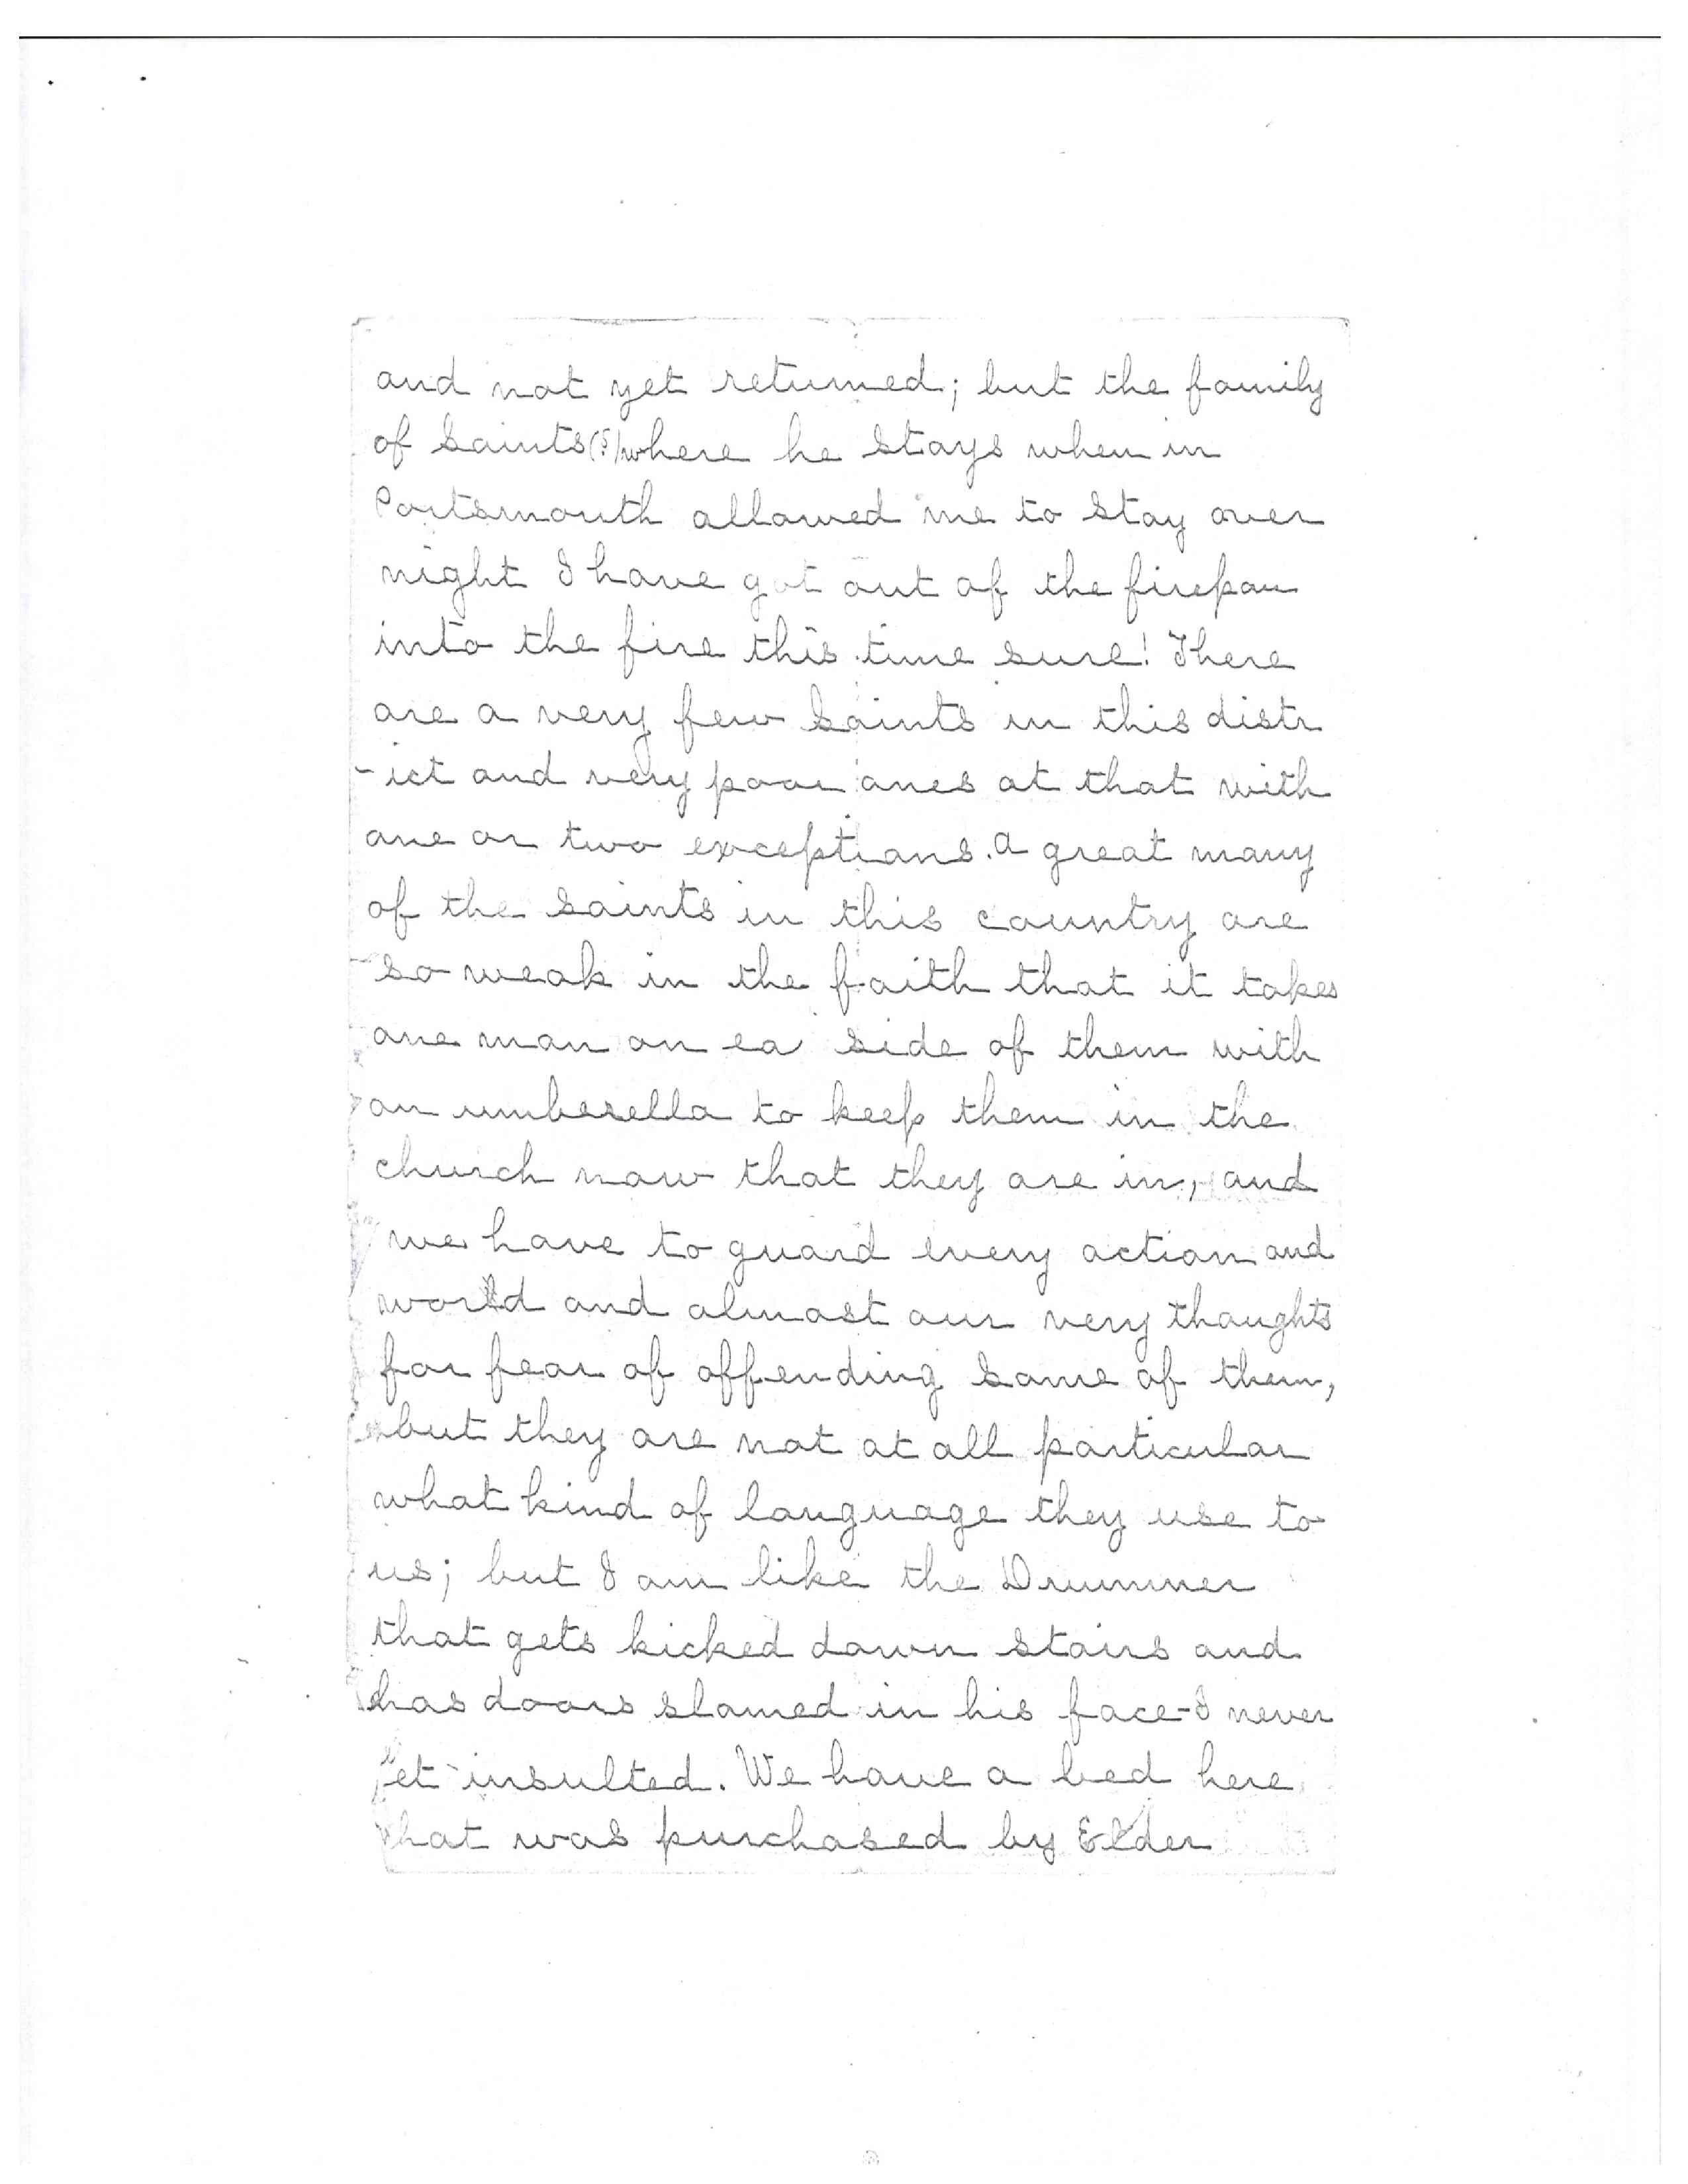 and not yet returned; but the family
of Saints(?) where he stays when in
Portsmouth allowed me to stay over
night I have got out of the firepan
into the fire this time sure! There
are a very few Saints in this distr
-ict and very poor ones at that with
one or two exceptions. A great many
of the saints in this country are
so weak in the faith that it takes
one man on ea side of them with
an umberella to keep them in the
church now that they are in, and
we have to guard every action and
word and almost our very thoughts
for fear of offending some of them,
but they are not at all particular
what kind of language they use to
us; but I am like the Drummer
that gets kicked down stairs and
has doors slamed in his face-I never
et insulted. We have a bed here
that was purchased by Elder